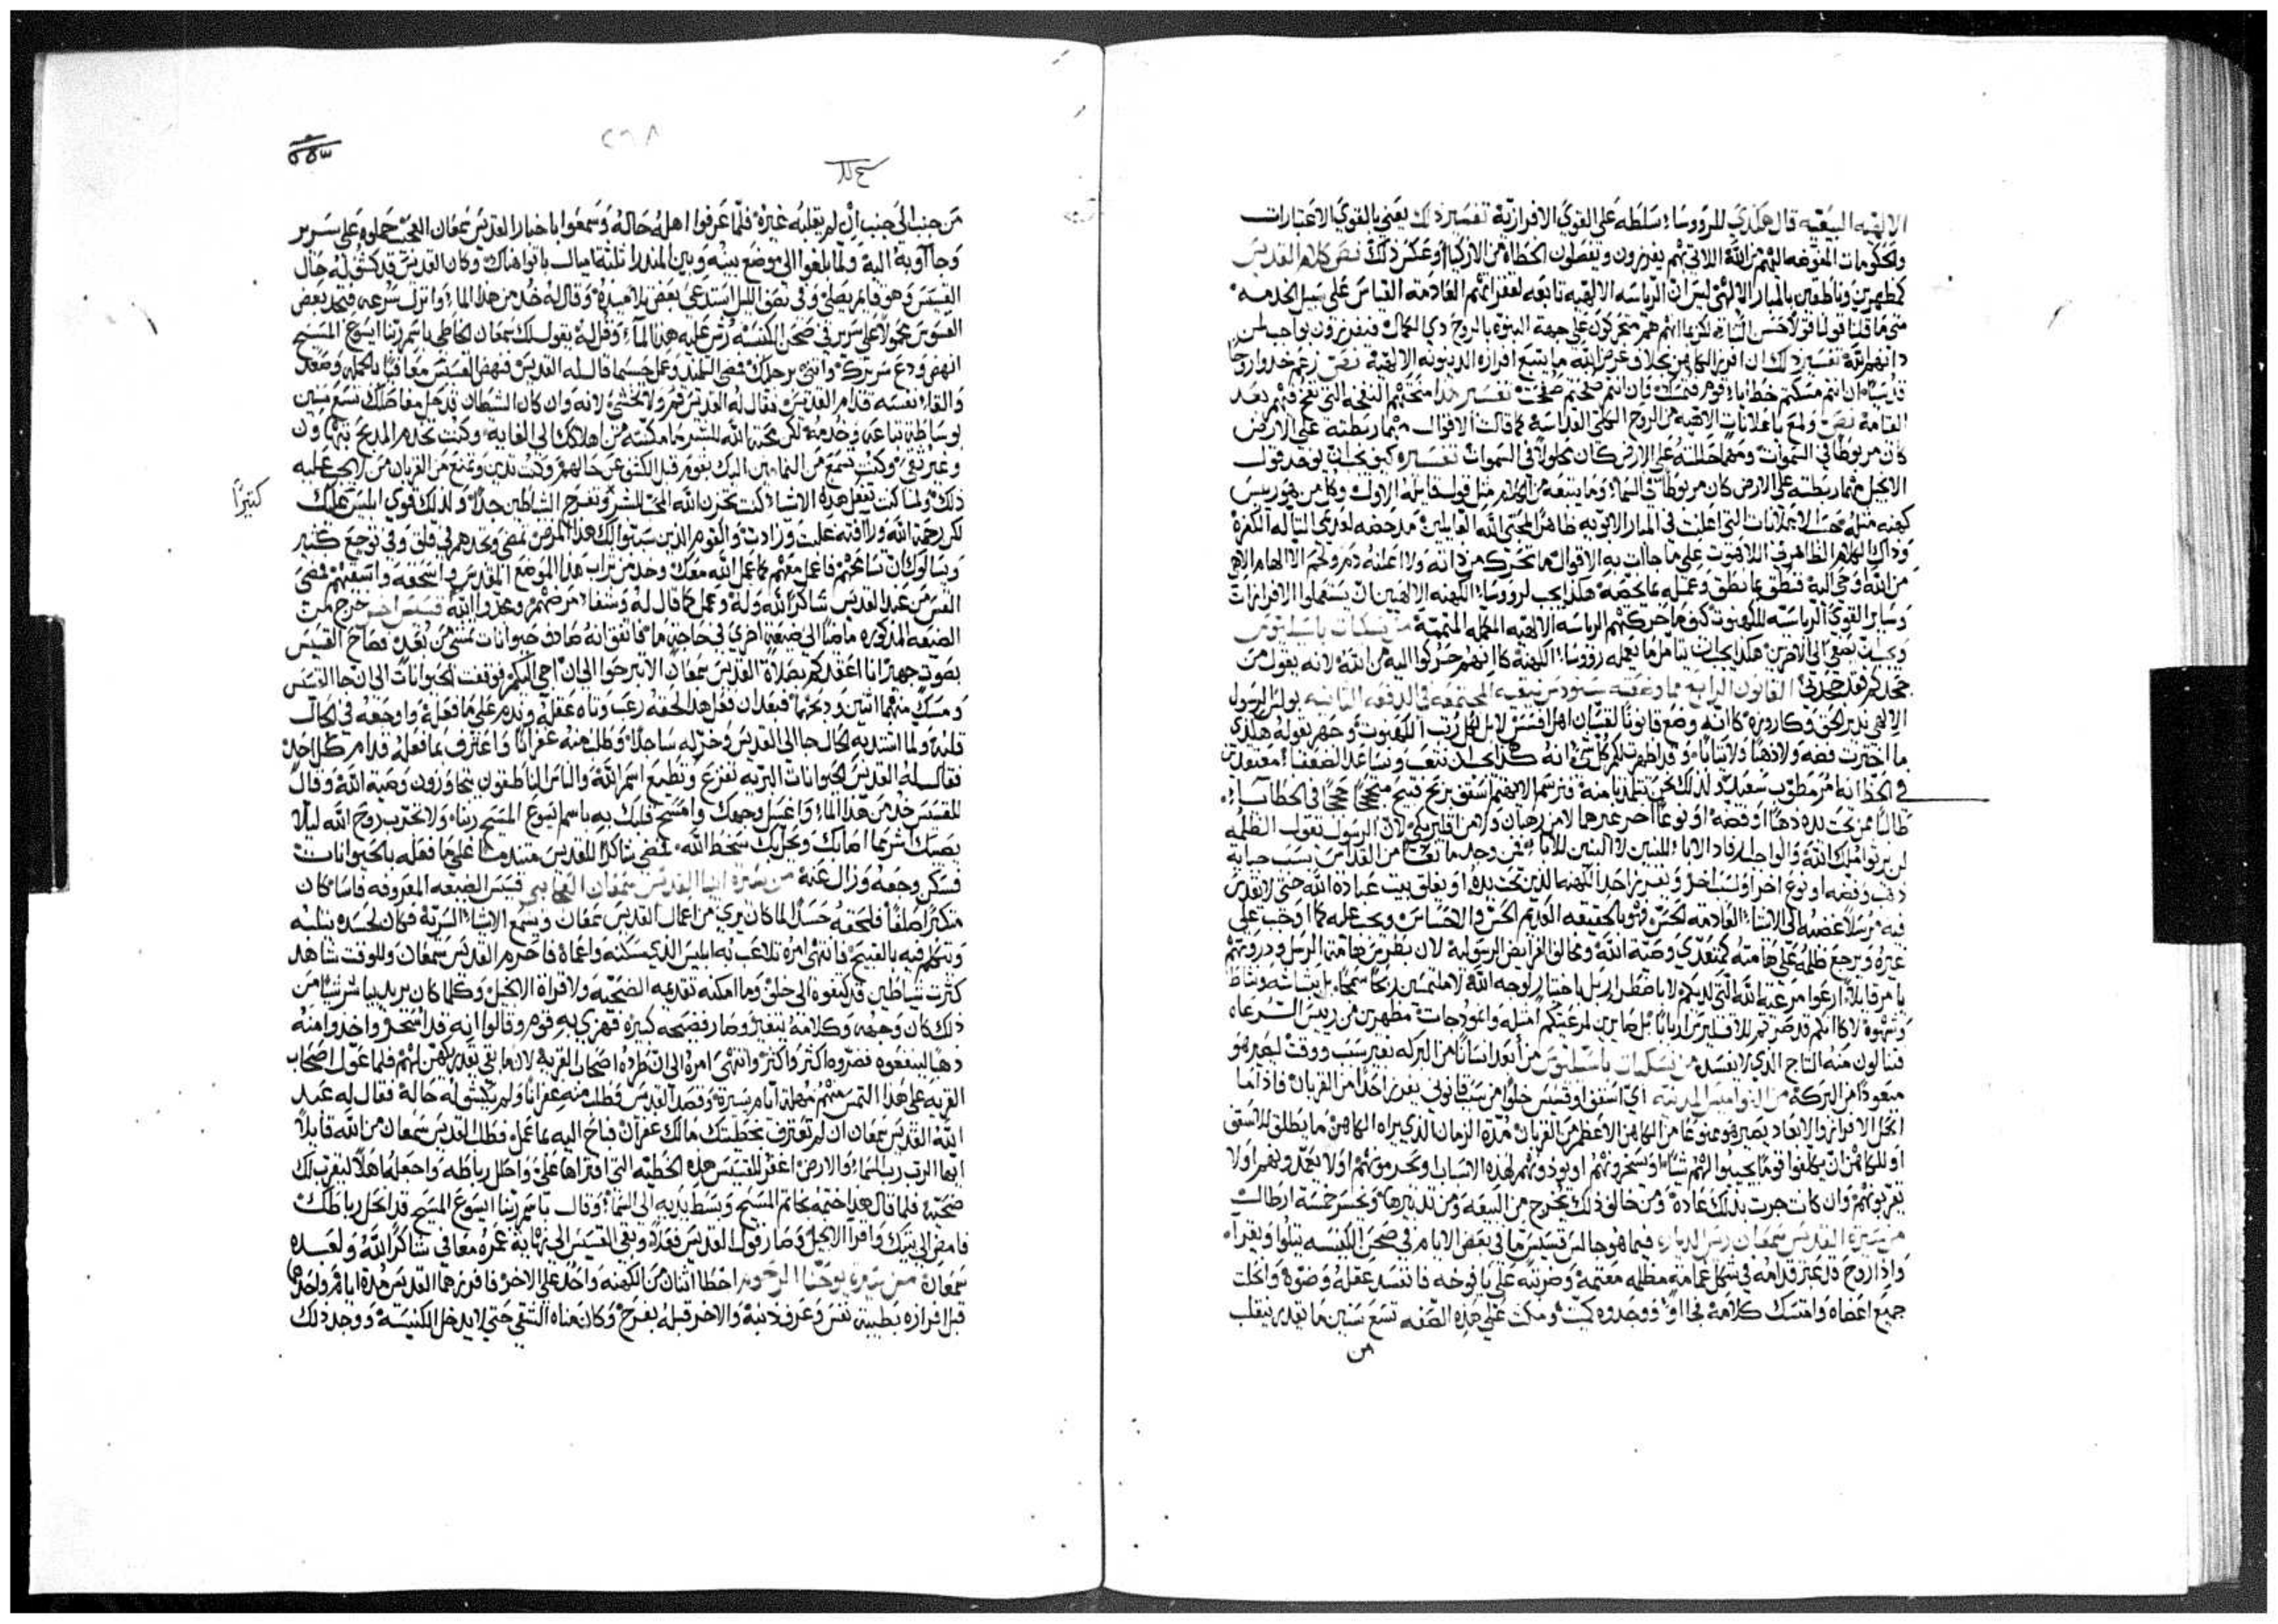 الالهيه البيعيه قال هكذي للرووسا؛ سلطه على القوى الافرازية تفسير ذلك يعني بالقوي الاعتبارات
والحكومات المفوضه اليهم من الله اللاتي بهم يفرزون ويفصلون الخطاه من الازكيا وعكس ذلك نص كلام القديس
كمظهرين وناطقين بالمبار الالهي ليس ان الرياسه الالهيه تابعه لعزايمهم العادمة القياس على سبيل الخدمه
متى ما قلنا قولا لكن بما انهم هم متحركون على جهة النبوه بالروح ذي الكمال فيفرزون بواجب لمن
دانهم الله تفسير ذلك ان افرز الكاهن بخلاف غرض الله ما يتبع افرازه الدينونه الالهية نص زعم خدوا روحا
قدسيا ان انتم مسكتم خطايا قوم فتمسك وان انتم صفحتم صفحت تفسير هذا منحتهم النفخه التي نفخ فيهم بعد
القيامة نص ولمع باعلانات الالهيه من الروح الكلي القداسة كما قالت الاقوال مهما ربطته على الارض
كان مربوطا في السموات ومهما حللته على الارض كان محلولا في السموات تفسيره كيف يجب ان يوخد قول
الانجيل مهما ربطته على الارض كان مربوطا في السماء وما يتبعه من الكلام مثل قول قايله الاول وكل من هو رييس
كهنه مثله بحسب الاعلانات التي اعلنت في المبار الابويه
من الله اوحي اليه فنطق بما نطق وعمل هكذا يجب لرووسا؛ الكهنه الالهين ان يستعملوا الافرازات
وساير القوى الرياسيه للكهنوت كيف ما حركتهم الرياسه الالهيه المكمله المتممة من نسكيات باسيليوس
ويجب ان نصغي الى الاخرين هكذا يجب ان نتامل ما يعمله رووسا؛ الكهنة لانه يقول من
جحدكم فقد جحدني القانون الرابع مما وضعته سنودس نيقيه المجتمعه في الدفعه الثانيه بولس الرسول
الالهي نذير الحق وكاروزه كانه وضع قانونا لقسان اهل افسس لا بل لكل رتب الكهنوت وجهر بقوله هكذي
ما اخترت فضه ولا ذهبا ولا ثيابا؛ وقد اظهرت لكم كل شي انه كذا يجب ان نتعب ونساعد الضعفا؛ معتقدين
في الحظ انه امر مطوب سعيد ولذلك نحن نتلمذنا منه فنرسم الا يهتم اسقف بربح قبيح محتجا حججا في الخطا
طالبا ممن تحت يده ذهبا او فضه او نوعا اخر غيرها لا من رهبان ولا من اقليريكي لان الرسول يقول الظلمه
لن يرثوا ملك الله
ذهب وفضه او نوع اخر او لسبب اخر ويفرز احدا الكهنه الذين تحت يده او يغلق بيت عبادة الله حتى لا يقدس
فيه مرسلا غضبه الى الاشيا؛ العادمه الحس فهو بالحقيقه العديم الحس والاحساس ويجب عليه كما اوجب على
غيره ويرجع ظلمه على هامته كمتعدي وصية الله ومخالف الفرايض الرسوليه لان بطرس هامة الرسل وذروتهم
يامر قايلا؛ ارعوا مرعية الله التي لديكم لا باضطرار بل باختيار لوجه الله لا ملتمسين ربحا سمجا بل ببشاشه ونشاط
وشهوة لا كانكم قد صرتم للاقليرس اربابا بل صايرين لمرعيتكم امثله وانموذجات مظهرين من رييس الرعاه
فتنالون منه التاج الذي لا يفسد من نسكيات باسيليوس من ابعد انسانا من البركه بغير سبب ووقت ليصير هو
مبعودا من البركة من النواميس المدنيه اي اسقف او قسيس خلوا من سبب قانوني يفرز احدا من القربان فاذا ما
انحل الافراز والابعاد يصير هو ممنوعا من الكاهن الاعظم من القربان مدة الزمان الذي يراه الكاهن ما يطلق للاسقف
او للكاهن ان يكلفوا قوما يجيبوا لهم شيئا او يسخرونهم او يوذونهم لهذه الاسباب ويحرمونهم او لا يعمدونهم او لا
يقربونهم وان كانت جرت بذلك عادة ومن خالف ذلك يخرج من البيعه ومن تدبيرها ويخسر خمسة ارطال
من سيرة القديس سمعان رييس الدياره فيما هو جالس قسيس ما في بعض الايام في صحن الكنيسه يتلوا ويقرا
واذا روح قد عبر قدامه في شكل غمامة مظلمه معتمة وضربته على يافوخه فانفسد عقله وضوه وانحلت
جميع اعضاه وامتسك كلامه فجااوا ووجدوه كميت ومكث على هذه الصفه تسع سنين ما يقدر ينقلب
من
٢٦٨
من جنب الى جنب ان لم يقلبه غيره فلما عرفوا اهله حاله وسمعوا باخبار القديس سمعان العجب حملوه على سرير
وجااو به اليه ولما بلغوا الى موضع بينه وبين المندرا ثلثة اميال باتوا هناك وكان القديس قد كشف له حال
القسيس وهو قايم يصلي وفي نصف الليل استدعى بعض تلاميذه وقال له خد من هذا الماء؛ وانزل بسرعه فتجد بعض
القسوس محمولا على سرير في صحن الكنيسه رش عليه هذا الماء؛ وقل له يقول لك سمعان الخاطي باسم ربنا ايسوع المسيح
انهض ودع سريرك وانثني برجلك فمضى التلميد وعمل حسبما قال له القديس فنهض القسيس معافيا بالجمله وصعد
والقا؛ نفسه قدام القديس فقال له القديس قم ولا تخشى لانه وان كان الشيطان قد حل مفاصلك تسع سنين
بوساطة تباعه وخدمه لكن محبة الله للبشر ما مكنته من اهلاكك الى الغاية وكنت تخدم المدبح بتهاون
وغير نقي وكنت تسمع من النمامين اليك بقوم قبل الكشف عن حالهم وكنت تدين وتمنع من القربان من لا يجب عليه
ذلك ولما كنت تفعل هذه الاشيا؛ كنت تحزن الله المحب البشر وتفرح الشياطين جدا ولذلك قوي ابليس عليك
كثيرا
لكن رحمة الله ورافته غلبت وزادت والقوم الذين سببوا لك هذا المرض تمضي وتجدهم في قلق وفي توجع كثير
ويسالوك ان تسامحهم فاعمل معهم كما عمل الله معك وخد من تراب هذا الموضع المقدس واسحقه واسقيهم فمضى
القس من عند القديس شاكرا لله وله وعمل كما قال له وشفا؛ مرضهم ومجدوا الله قسيس اخر خرج من
الضيعه المذكوره ماضيا الى ضيعة اخرى في حاجة ما فاتفق انه صادف حيوانات تمشي من بعد فصاح القسيس
بصوت جهير انا اعقدكم بصلاة القديس سمعان الا تبرحوا الى ان اجي اليكم فوقفت الحيوانات الى ان جا القسيس
ومسك منهما اثنين ودبحهما فبعد ان فعل هذا لحقه رعب وتاه عقله وندم على ما فعله واوجعه في الحال
قلبه ولما اشتد به الحال جا الى القديس وخر له ساجدا وطلب منه غفرانا واعترف بما فعله قدام كل احد
فقال له القديس الحيوانات البريه تفزع وتطيع اسم الله والناس الناطقون يتجاوزون وصية الله وقال
للقسيس خد من هذا الماء؛ واغسل وجهك وامسح قلبك به باسم ايسوع المسيح ربنا؛ ولا تجرب روح الله ليلا
يصيبك اشر مما اصابك ويحل بك سخط الله فمضى شاكرا للقديس متندما على ما فعله بالحيوانات
فسكن وجعه وزال عنه من سيرة ابينا القديس سمعان العجايبي قسيس الضيعه المعروفه فاسا كان
متكبرا صلفا فلحقه حسد لما كان يرى من اعمال القديس سمعان ويسمع الاشيا؛ السريه فكان لحسده يثلبه
ويتكلم فيه بالقبيح فانتهى امره تلاعب به ابليس الذي سكنه واعماه فاحرم القديس سمعان وللوقت شاهد
كثرت شياطين قد كتفوه الى خلف وما امكنه تقدمه الضحيه ولا قراة الانجيل وكلما كان يريد يباشر شيا من
ذلك كان وجهه وكلامه يتغير وصار فضيحه كبيره فهزي به قوم وقالوا انه قد انسحر واخدوا منه
ذهبا لينفعوه فضروه اكثر واكثر وانتهى امره الى ان طردوه اصحاب القريه لانه ما بقي يقدر يكهن لهم فلما عول اصحاب
القريه على هدا التمس منهم مهلة ايام يسيرة وقصد القديس فطلب منه غفرانا ولم يكشف له حاله فقال له عبد
الله القديس سمعان ان لم تعترف بخطيتك ما لك غفران فباح اليه بما عمل فطلب القديس سمعان من الله قايلا
ايها الرب رب السما؛ والارض اغفر للقسيس هذه الخطيه التي افتراها علي واحلل رباطه واجعله اهلا ليقرب لك
ضحيه فلما قال هدا ختمه بخاتم المسيح وبسط يديه الى السما؛ وقال باسم ربنا ايسوع المسيح قد انحل رباطك
فامض الى بيتك واقرا الانجيل وصار قول القديس فعلا وبقي القسيس الى نهاية عمره معافى شاكرا لله ولعبده
سمعان من سيرة يوحنا الرحوم اخطا اثنان من الكهنه واحد على الاخر فافرزهما القديس مدة ايام واحدهما
قبل افرازه بطيبة نفس وعرف ذنبه والاخر قبله بفرح وكان مناه الشقي حتى لا يدخل الكنيسة ووجد ذلك